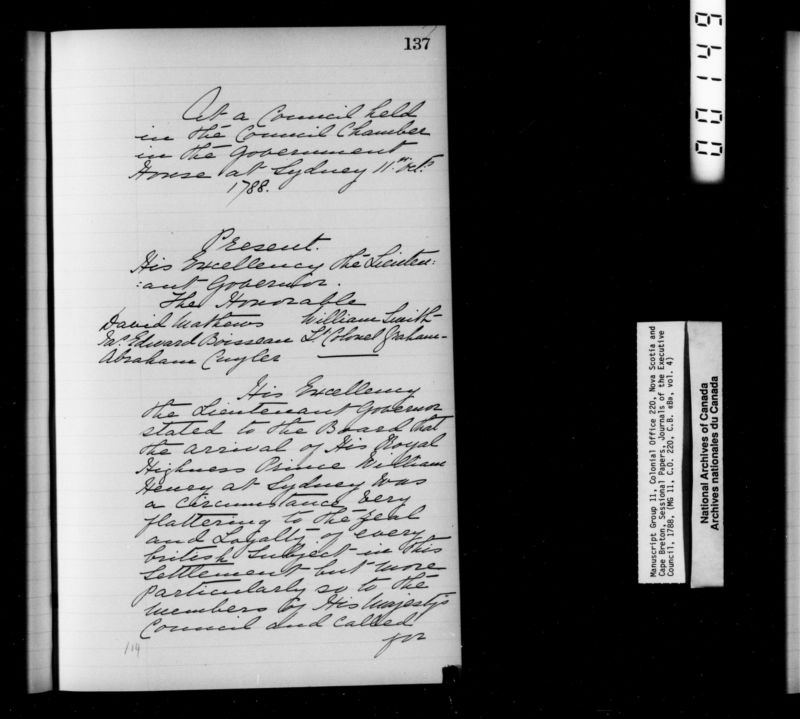 137
At a Council held
in the Council Chamber
in the Government
House at Sydney 11th Octr
1788.
Present.
His Excellency the Lieuten:
:ant Governor.
The Honorable
David Mathews William Smith
Edward Boisseau Lt Colonel Graham
Abraham Cuyler
His Excellency
the Lieutenant Governor
stated to the Board that
the arrival of His Royal
Highness Prince William
Henry at Sydney was
a circumstance very
flattering to the zeal
and Loyalty of every
british Subject in this
Settlement but more
particularly so to the
members of His Majesty's
Council and called
for
114
00149
Manuscript Group 11, Colonial Office 220, Nova Scotia and
Cape Breton, Sessional Papers, Journals of the Executive
Council, 1788, (MG 11, C.O. 220, C.B. «B», vol. 4)
National Archives of Canada
Archives nationales du Canada